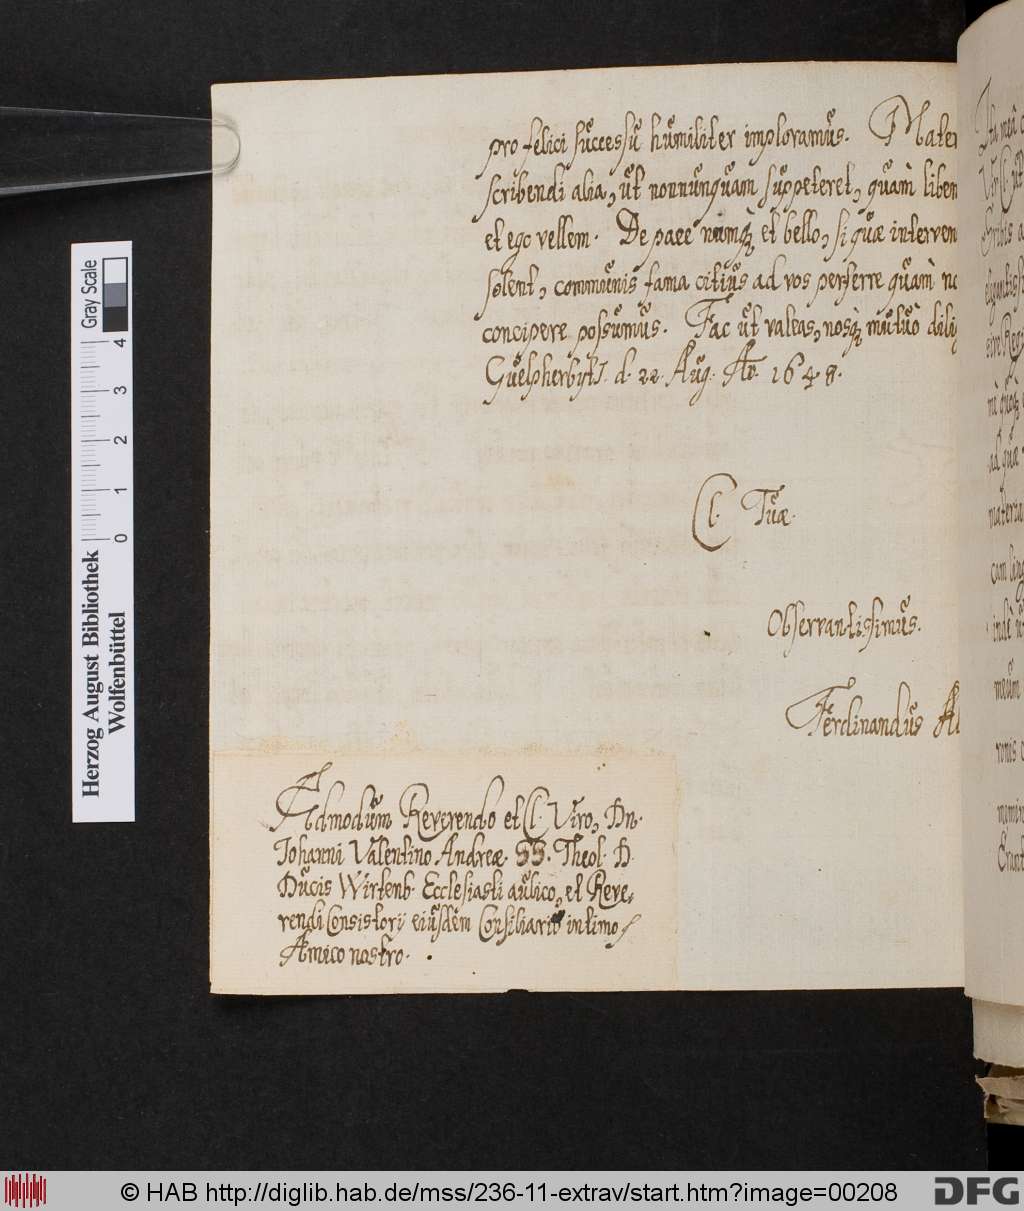 pro felici successu humiliter imploramus. Mater
scribendi alia, ut nonnunquam suppeteret, quàm liben
et ego vellem. De pace namq; et bello, si quæ interven
solent, communis fama citius ad vos perferre quàm no
concipere possumus. Fac ut valeas, nosq; mutuò dilig
Guelpherbyti. d. 22. Aug. Ao. 1648.
Cl. Tuæ.
Observantissimus.
Ferdinandus Al
Admodum Reverendo et Cl. Viro, Dn.
Johanni Valentino Andreæ. SS. Theol. D.
Ducis Wirtenb. Ecclesiasti aulico, et Reve-
rendi Consistorij eiusdem Consiliario intimo
Amico nostro.
Ita meâ
ad quæ
materia
meum
Gray Scale
0 1 2 3 4
Herzog August Bibliothek
Wolfenbüttel
© HAB http://diglib.hab.de/mss/236-11-extrav/start.htm?image=00208
DFG